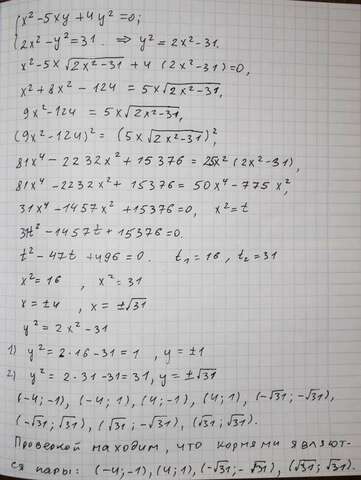 {x² - 5xy + 4y² = 0;
{2x² - y² = 31. ⇒ y² = 2x² - 31.
x² - 5x√(2x² - 31) + 4 (2x² - 31) = 0,
x² + 8x² - 124 = 5x√(2x² - 31),
9x² - 124 = 5x√(2x² - 31),
(9x² - 124)² = (5x√(2x² - 31))²,
81x⁴ - 2232x² + 15376 = 25x² (2x² - 31),
81x⁴ - 2232x² + 15376 = 50x⁴ - 775x²,
31x⁴ - 1457x² + 15376 = 0, x² = t
31t² - 1457t + 15376 = 0.
t² - 47t + 496 = 0. t₁ = 16, t₂ = 31
x² = 16, x² = 31
x = ±4, x = ±√31
y² = 2x² - 31
1) y² = 2·16 - 31 = 1, y = ±1
2) y² = 2·31 - 31 = 31, y = ±√31
(-4; -1), (-4; 1), (4; -1), (4; 1), (-√31; -√31),
(-√31; √31), (√31; -√31), (√31; √31).
Проверкой находим, что корнями являют-
ся пары: (-4; -1), (4; 1), (-√31; -√31), (√31; √31).